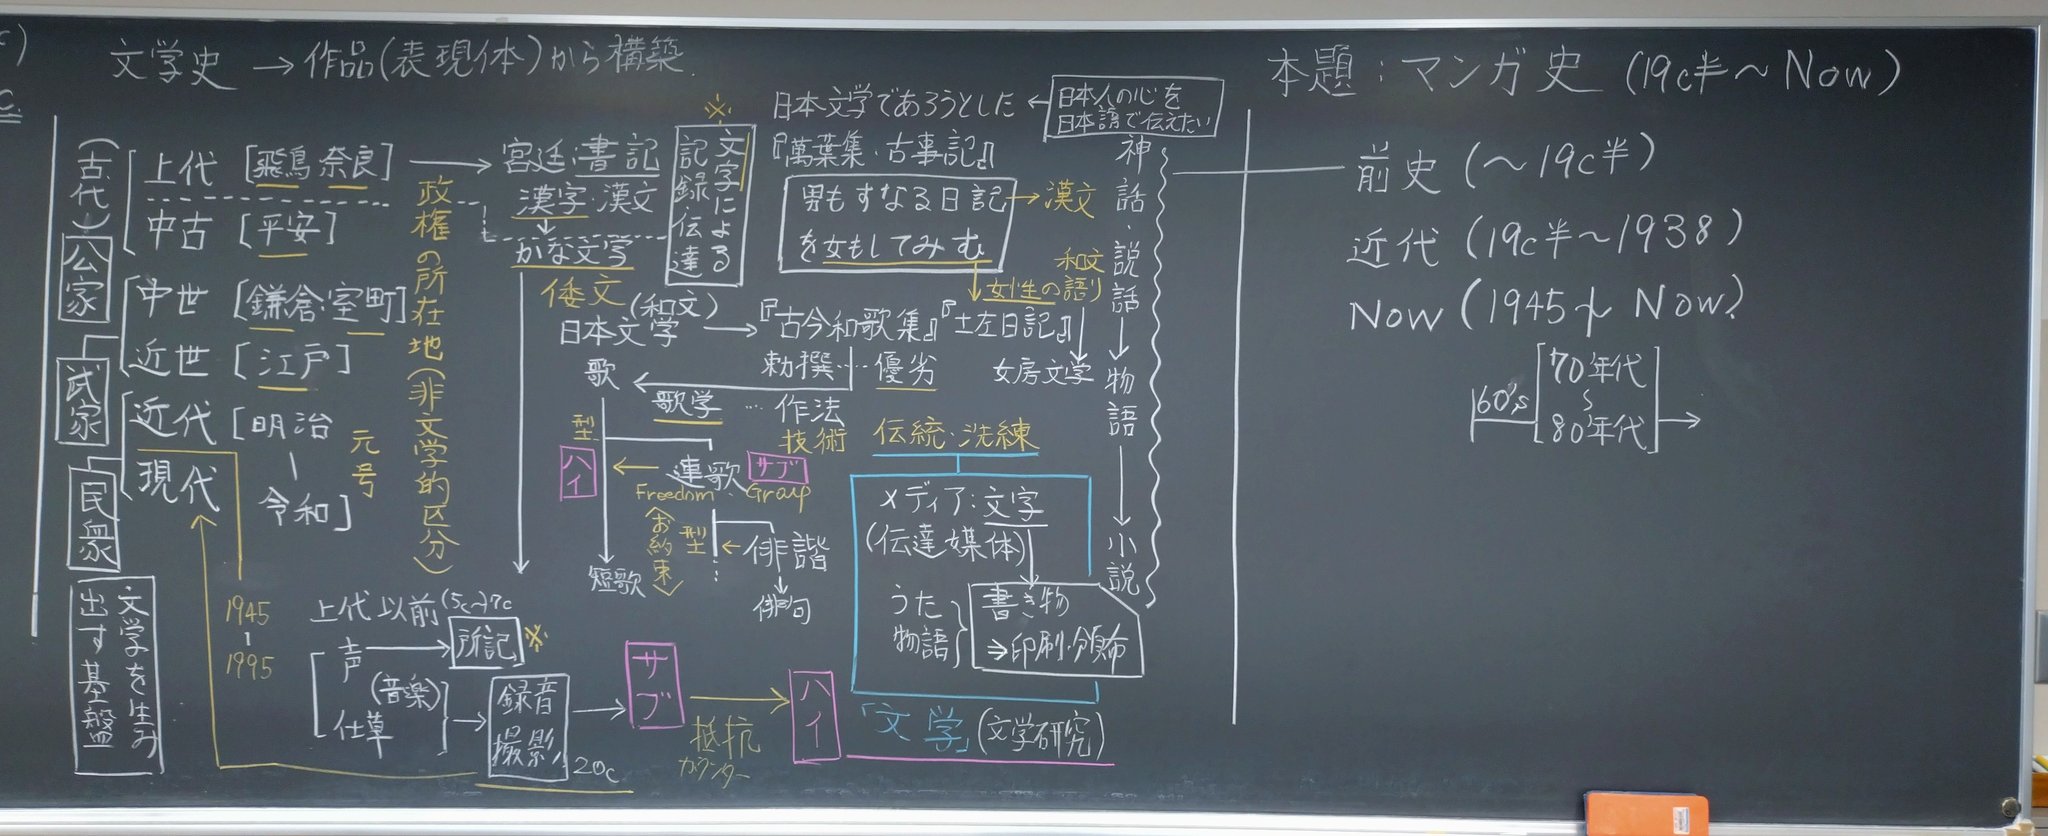 文学史 → 作品(表現体)から構築
(古代)
公家
武家
民衆
文学を生み
出す基盤
上代 [飛鳥 奈良]
中古 [平安]
中世 [鎌倉・室町]
近世 [江戸]
近代 [明治
|
令和]
現代
元号
1945
|
1995
政権の所在地(非文学的区分)
宮廷・書記
漢字・漢文
かな文字
倭文
(和文)
日本文学
※
文字による
記録・伝達
日本文学であろうとした ←
日本人の心を
日本語で伝えたい
『萬葉集・古事記』
男もすなる日記
を女もしてみむ
→漢文
和文
女性の語り
『古今和歌集』『土左日記』
勅撰……優劣
女房文学
歌
歌学 … 作法
技術
型
ハイ
連歌
サブ
Freedom Group
〈お約束〉
型
俳諧
俳句
短歌
伝統・洗練
メディア:文字
(伝達媒体)
うた
物語
書き物
⇒印刷・頒布
「文学」(文学研究)
神話・説話→物語→小説
上代以前(5c~7c
声
所記
※
(音楽)
仕草
録音
撮影
20c
サブ
抵抗
カウンター
ハイ
本題:マンガ史 (19c半~Now)
前史 (~19c半)
近代 (19c半~1938)
Now (1945~Now?
60's
70年代
~
80年代